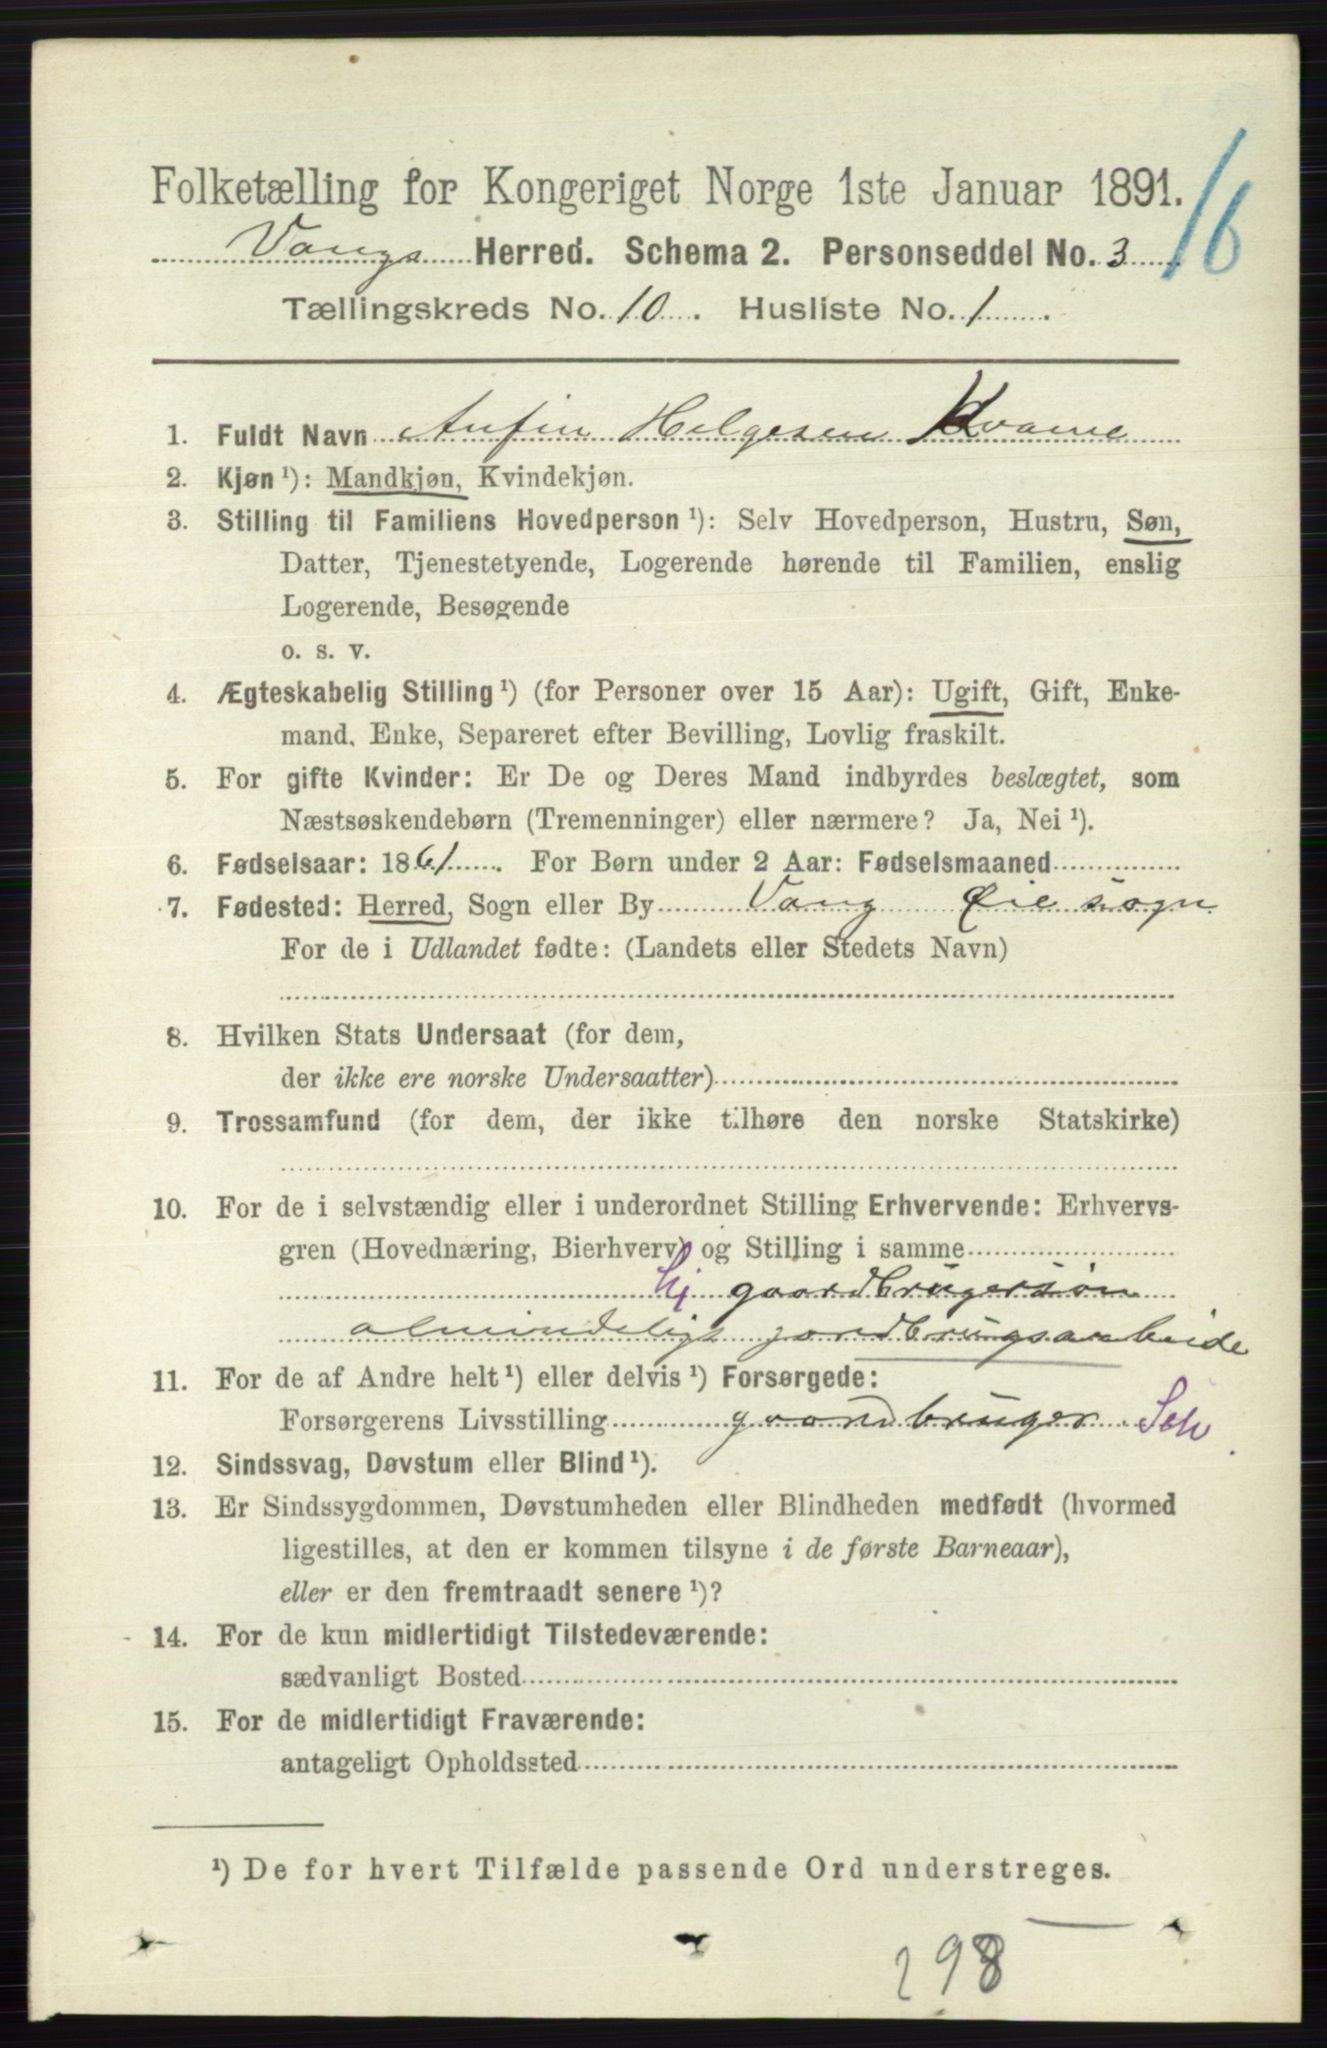 Folketælling for Kongeriget Norge 1ste Januar 1891.
16
Vangs Herred. Schema 2. Personseddel No. 3
Tællingskreds No. 10. Husliste No. 1.
1. Fuldt Navn Anfin Helgesen Kvame
2. Kjøn ¹): Mandkjøn, Kvindekjøn.
3. Stilling til Familiens Hovedperson ¹): Selv Hovedperson, Hustru, Søn,
Datter, Tjenestetyende, Logerende hørende til Familien, enslig
Logerende, Besøgende
o. s. v.
4. Ægteskabelig Stilling ¹) (for Personer over 15 Aar): Ugift, Gift, Enke-
mand, Enke, Separeret efter Bevilling, Lovlig fraskilt.
5. For gifte Kvinder: Er De og Deres Mand indbyrdes beslægtet, som
Næstsøskendebørn (Tremenninger) eller nærmere? Ja, Nei ¹).
6. Fødselsaar: 1861. For Børn under 2 Aar: Fødselsmaaned
7. Fødested: Herred, Sogn eller By Vang Øie sogn
For de i Udlandet fødte: (Landets eller Stedets Navn)
8. Hvilken Stats Undersaat (for dem,
der ikke ere norske Undersaatter)
9. Trossamfund (for dem, der ikke tilhøre den norske Statskirke)
10. For de i selvstændig eller i underordnet Stilling Erhvervende: Erhvervs-
gren (Hovednæring, Bierhverv) og Stilling i samme
gaardbrugersøn
almindelige jordbrugsarbeide
11. For de af Andre helt ¹) eller delvis ¹) Forsørgede:
Forsørgerens Livsstilling gaardbruger. Selv
12. Sindssvag, Døvstum eller Blind ¹).
13. Er Sindssygdommen, Døvstumheden eller Blindheden medfødt (hvormed
ligestilles, at den er kommen tilsyne i de første Barneaar),
eller er den fremtraadt senere ¹)?
14. For de kun midlertidigt Tilstedeværende:
sædvanligt Bosted
15. For de midlertidigt Fraværende:
antageligt Opholdssted
¹) De for hvert Tilfælde passende Ord understreges.
298